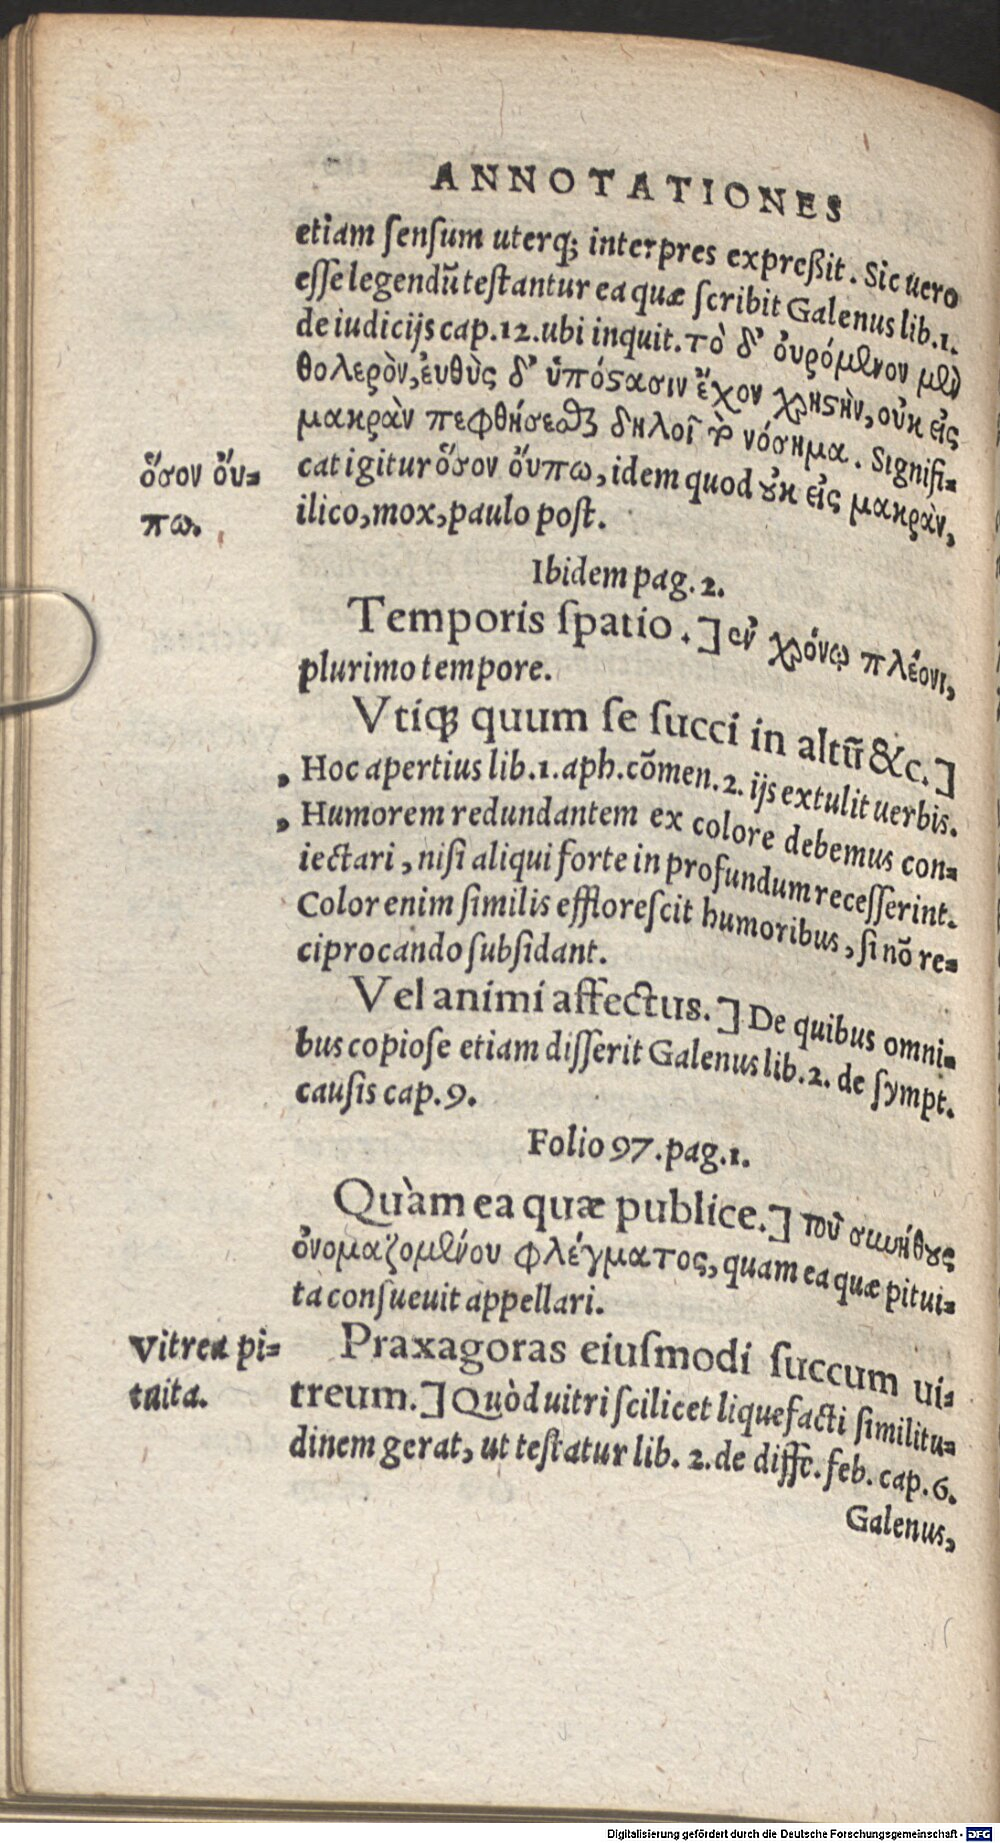 ANNOTATIONES
etiam ſenſum uterq; interpres expreßit. Sic uero
eſſe legendũ teſtantur ea quæ ſcribit Galenus lib. 1.
de iudicijs cap. 12. ubi inquit. τὸ δ᾽ ὀυρόμενον μὲν
θολερὸν, ἐυθὺς δ᾽ ὑπόϛασιν ἔχον χρηϛὴν, οὐκ εἰς
μακρὰν πεφθήσεσθαι δηλοῖ τὸ νόσημα. Signifi=
ὅσον ὄυ=
cat igitur ὅσον ὄυπω, idem quod ȣ̓κ εἰς μακρὰν,
πω.
ilico, mox, paulo poſt.
Ibidem pag. 2.
Temporis ſpatio.] ἐν χρόνῳ πλέονι,
plurimo tempore.
Vtiq; quum ſe ſucci in altũ &c.]
, Hoc apertius lib. 1. aph. cõmen. 2. ijs extulit uerbis.
, Humorem redundantem ex colore debemus con=
iectari, niſi aliqui forte in profundum receſſerint.
Color enim ſimilis effloreſcit humoribus, ſi nõ re=
ciprocando ſubſidant.
Vel animi affectus.] De quibus omni=
bus copioſe etiam diſſerit Galenus lib. 2. de ſympt.
cauſis cap. 9.
Folio 97. pag. 1.
Quàm ea quæ publice.] τοῦ συνήθȣς
ὀνομαζομένου φλέγματος, quam ea quæ pitui=
ta conſueuit appellari.
Vitrea pi=
tuita.
Praxagoras eiuſmodi ſuccum ui=
treum.] Quòd uitri ſcilicet liquefacti ſimilitu=
dinem gerat, ut teſtatur lib. 2. de diffe. feb. cap. 6.
Galenus,
Digitalisierung gefördert durch die Deutsche Forschungsgemeinschaft - DFG